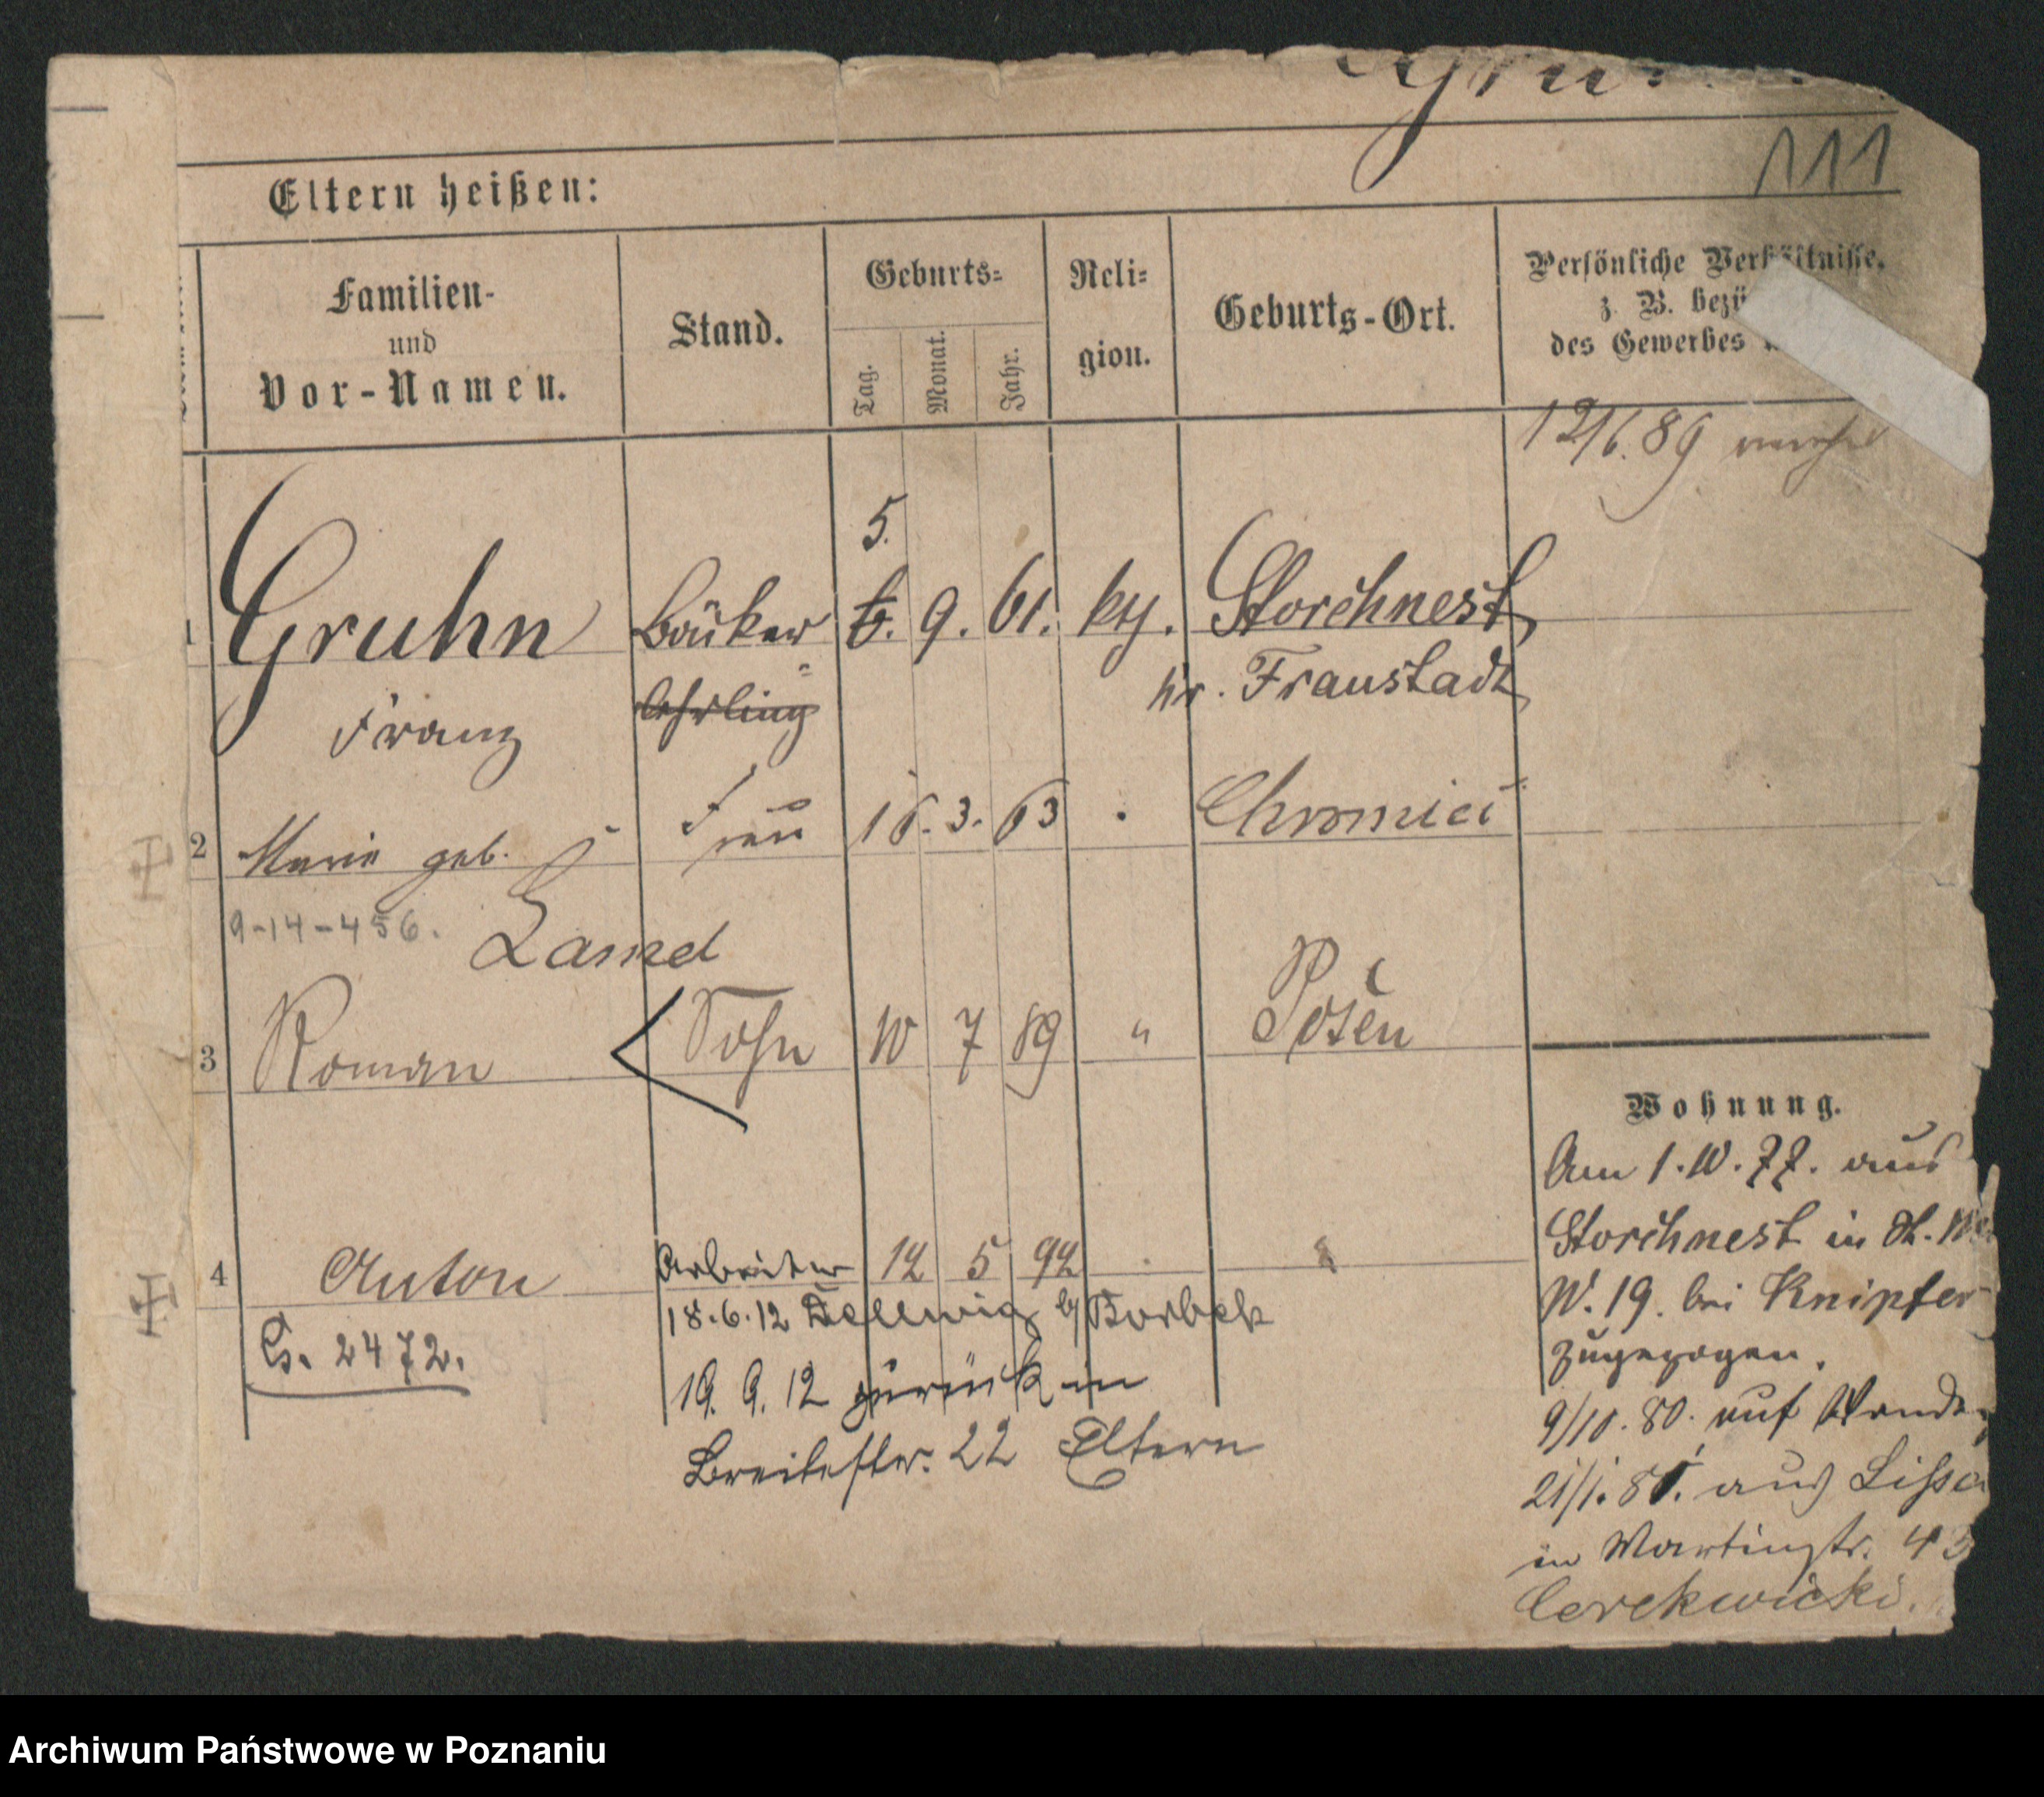 Gru
111
Eltern heißen:
Familien-
und
Vor-Namen.
Stand.
Geburts-
Tag.
Monat.
Jahr.
Reli-
gion.
Geburts-Ort.
Persönliche Verhältnisse,
z. B. bezü
des Gewerbes
12/6.89
1 Gruhn Bäcker 5. 6. 9. 61. kth. Storchnest
Franz lehrling Kr. Fraustadt
2 Marie geb. Frau 16. 3. 63
9-14-456.
3 Roman Sohn 10 7 89 " Posen
4 Anton Arbeiter 12 5 92
G. 2472.
18.6.12 Dellwig b/ Borbek
19. 9. 12 zurück in
Breitestr. 22 Eltern
Wohnung.
Am 1.10.77. aus
Storchnest in St.
N. 19. bei Knipfer
zugezogen.
9/10.80. auf
21/1.81. aus Lissa
in Martinstr. 43
Cerekwicki.
Archiwum Państwowe w Poznaniu